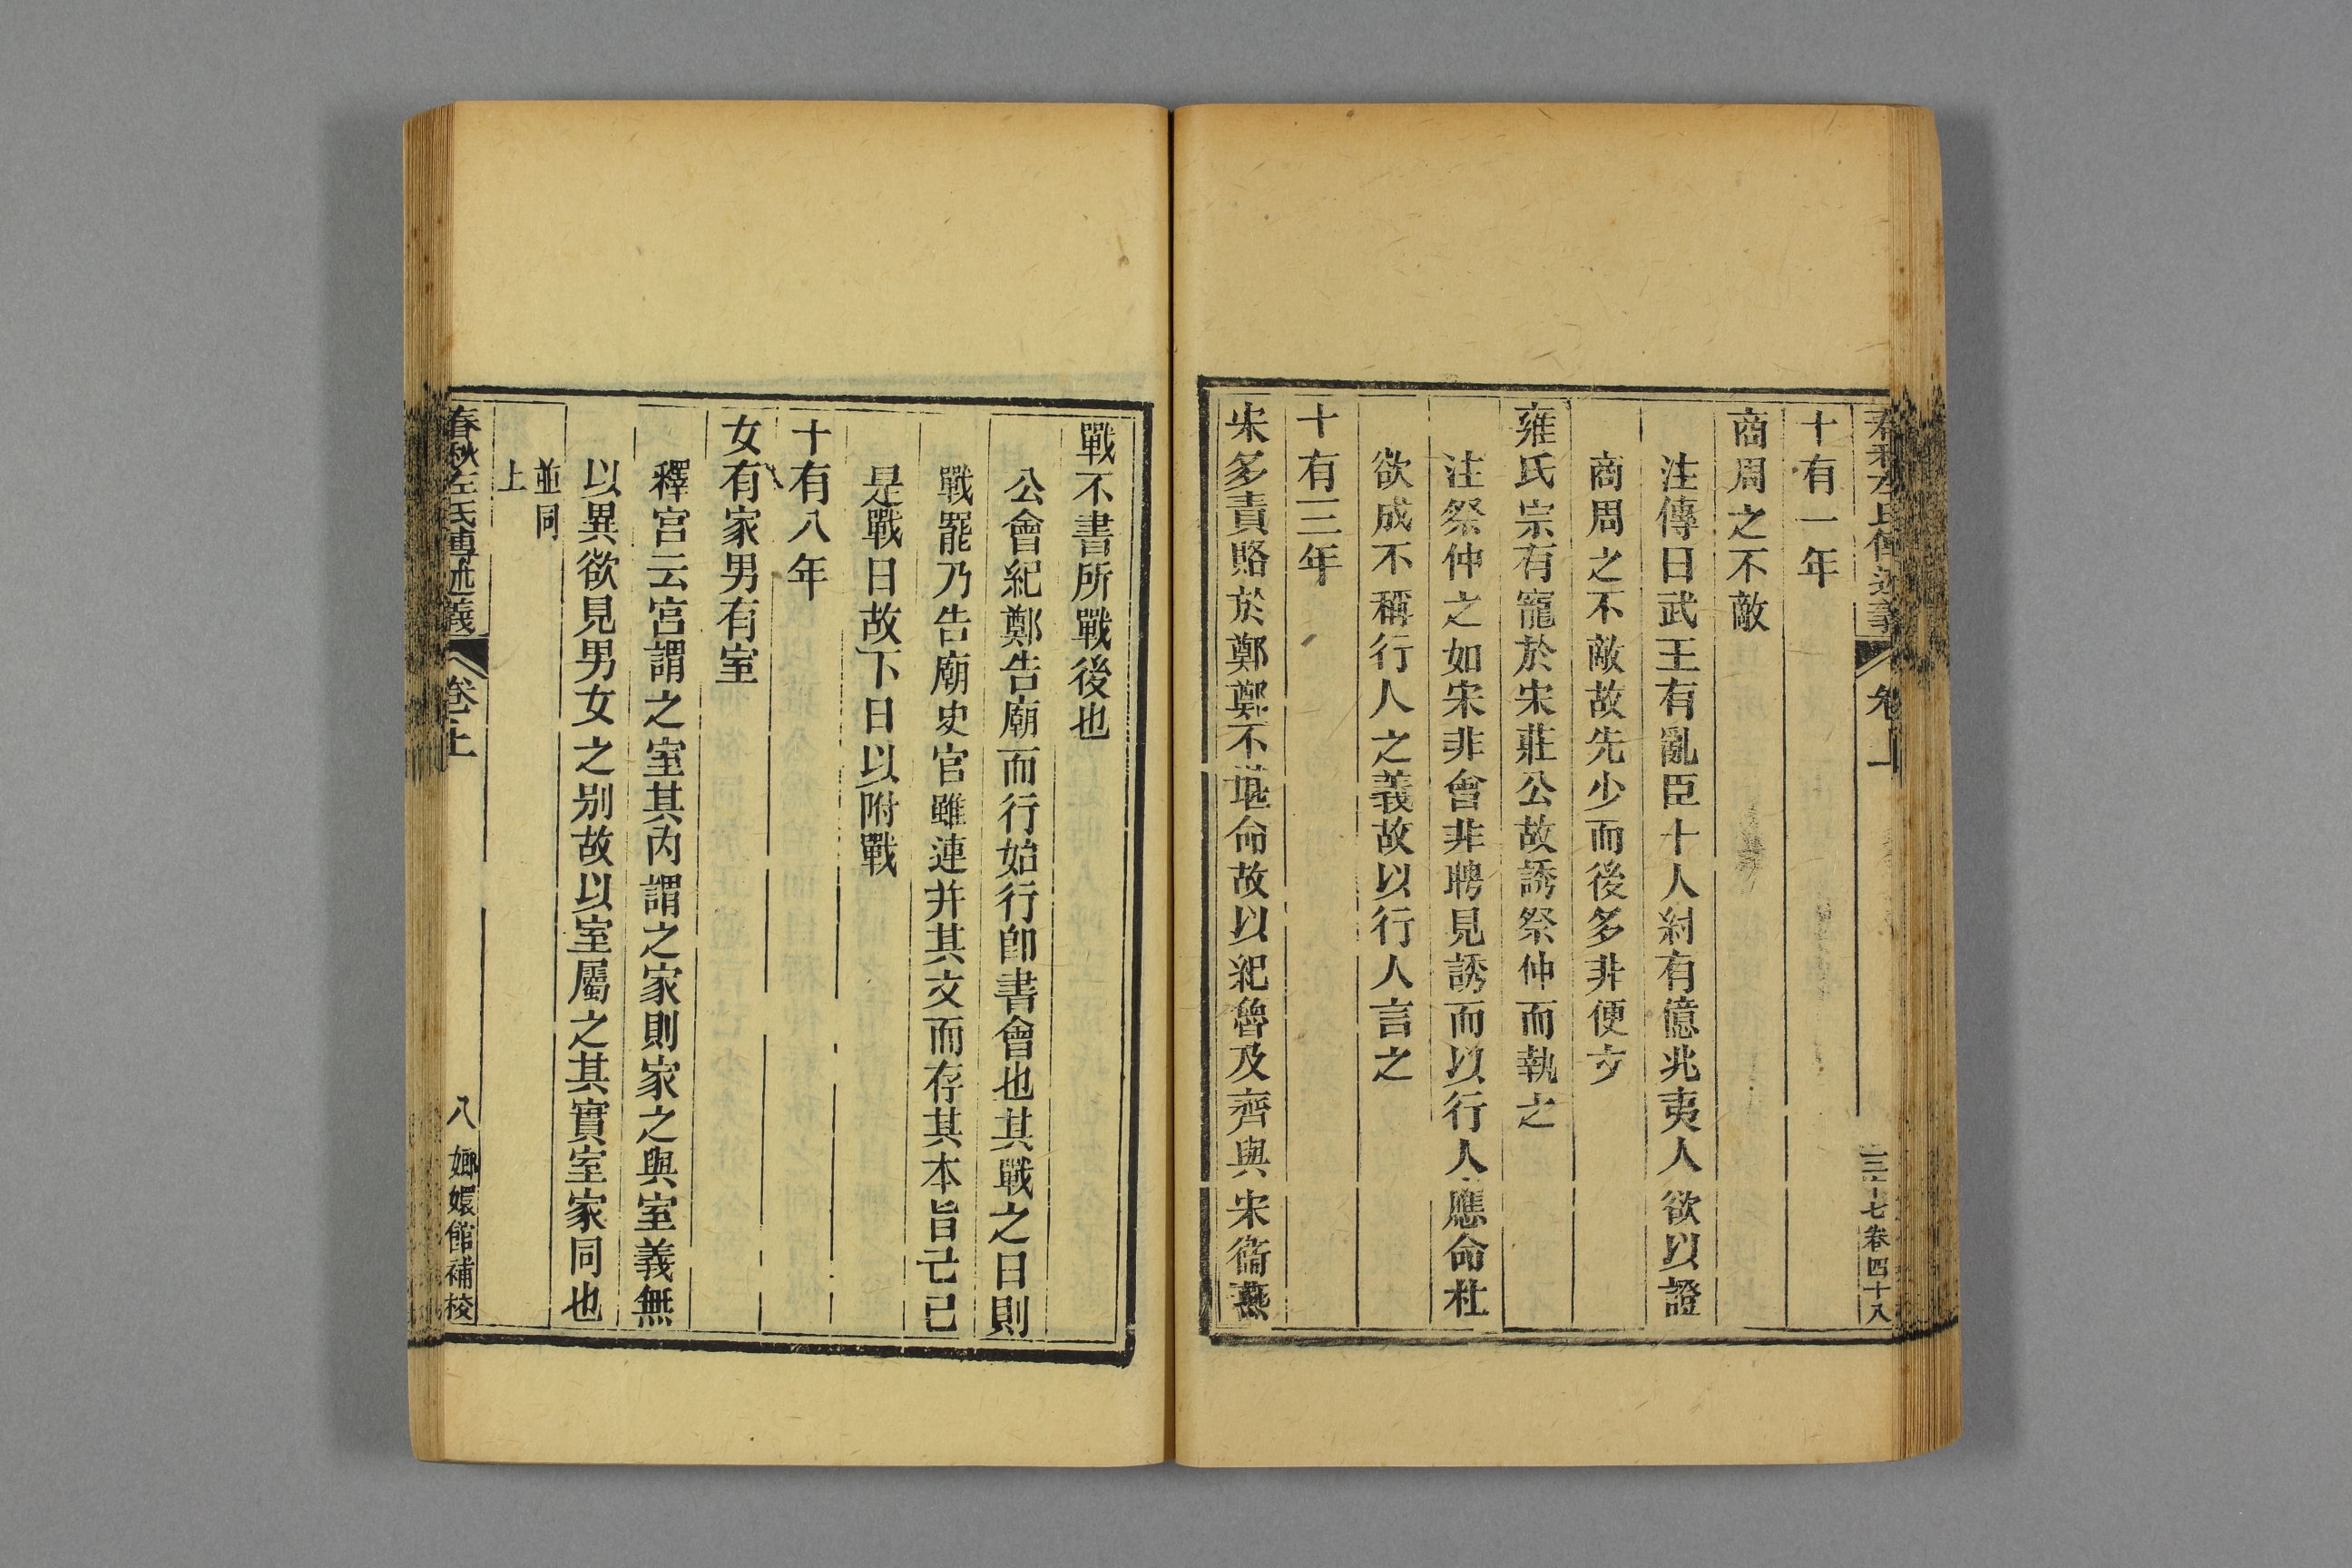 春秋左氏傳述義
卷上
三十七卷四十八
十有一年
商周之不敵
注傳曰武王有亂臣十人紂有億兆夷人欲以證
商周之不敵故先少而後多非便文
雍氏宗有寵於宋莊公故誘祭仲而執之
注祭仲之如宋非會非聘見誘而以行人應命杜
欲成不稱行人之義故以行人言之
十有三年
宋多責賂於鄭鄭不堪命故以紀魯及齊與宋衞燕
戰不書所戰後也
公會紀鄭告廟而行始行卽書會也其戰之日則
戰罷乃告廟史官雖連并其文而存其本旨己已
是戰日故下日以附戰
十有八年
女有家男有室
釋宮云宮謂之室其內謂之家則家之與室義無
以異欲見男女之别故以室屬之其實室家同也
並同
上
春秋左氏傳述義
卷上
八
嫏嬛館補校